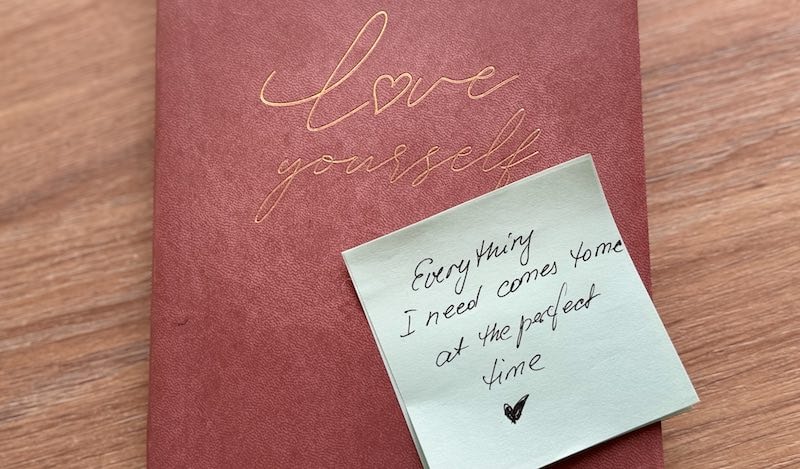 love
yourself
Everything
I need comes to me
at the perfect
time